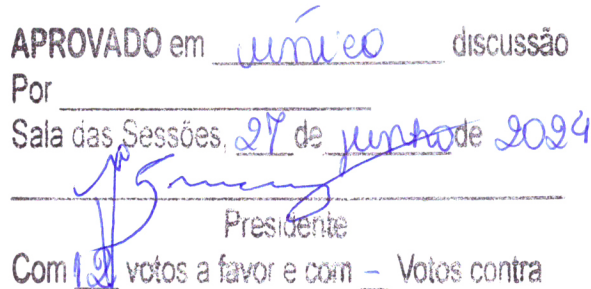 APROVADO em único discussão
Por
Sala das Sessões, 27 de junho de 2024
Presidente
Com 12 votos a favor e com - Votos contra